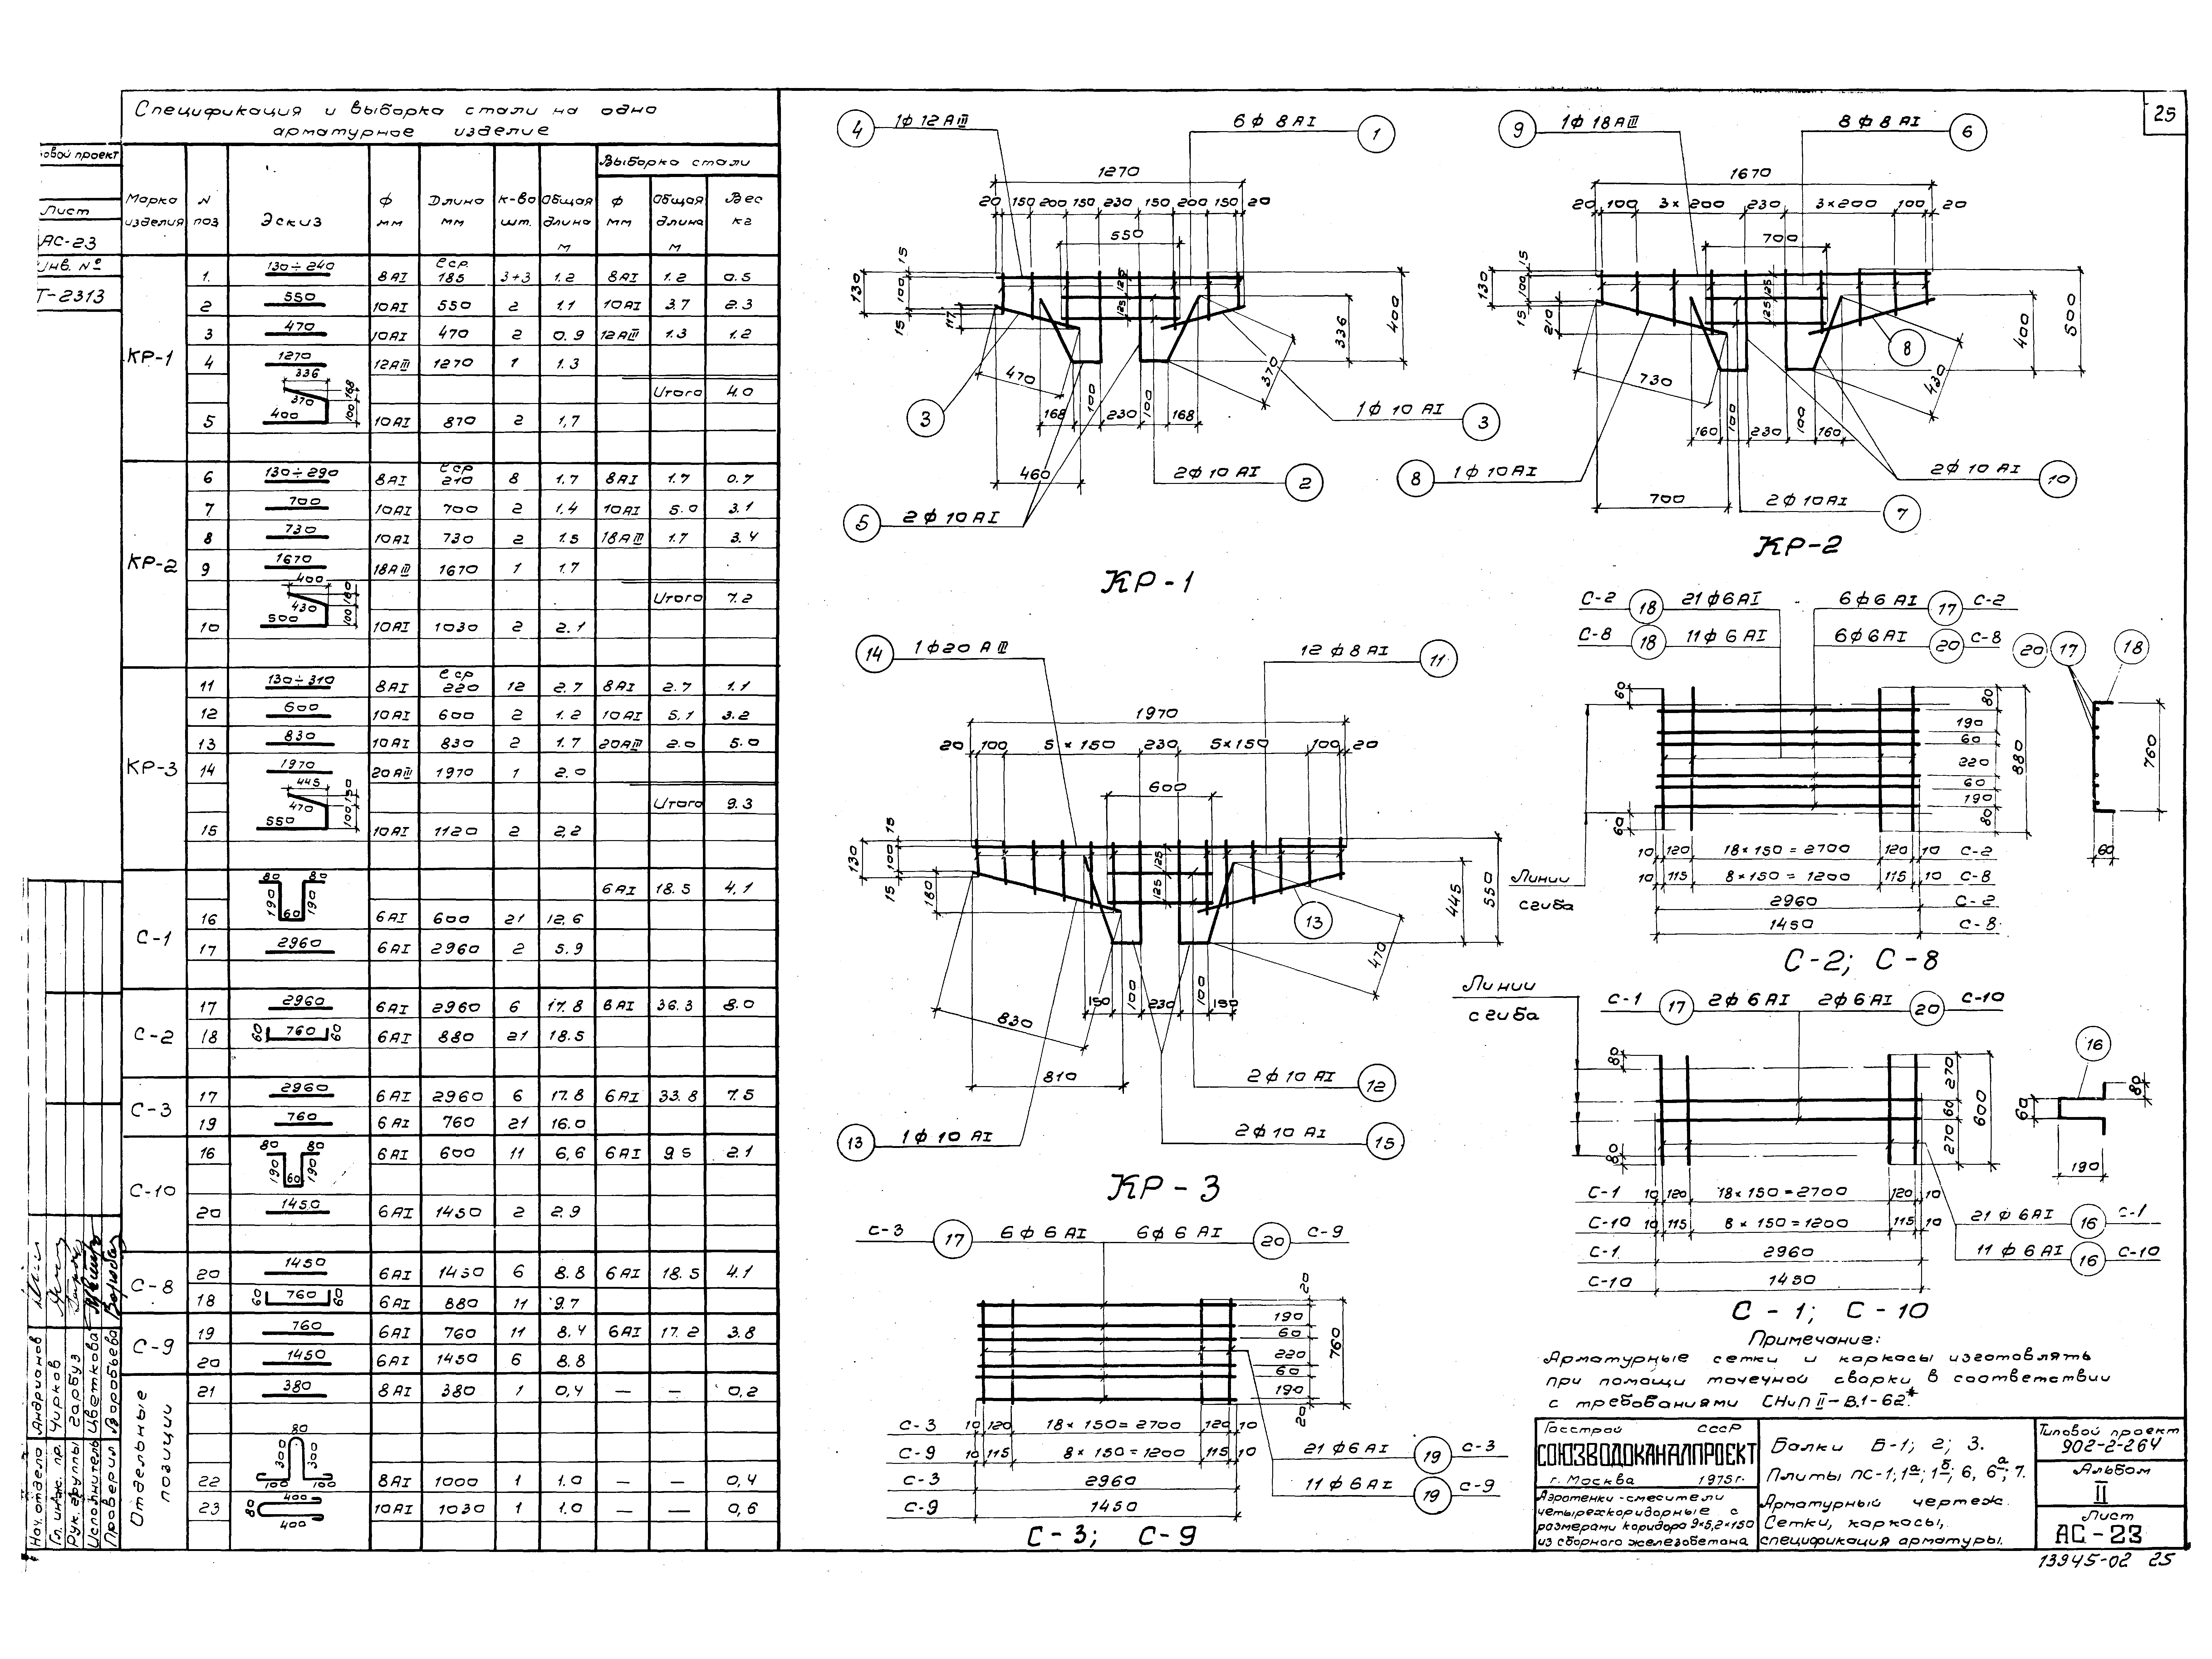 25
Спецификация и выборка стали на одно
арматурное изделие
овой проект
Лист
АС-23
Инв. №
Т-2313
Марка изделия N поз Эскиз ф мм Длина мм К-во шт. Общая длина м Выборка стали ф мм Общая длина м Вес кг
КР-1
1. 130÷240 8АI ℓср. 185 3+3 1.2 8АI 1.2 0.5
2 550 10АI 550 2 1.1 10АI 3.7 2.3
3 470 10АI 470 2 0.9 12АIII 1.3 1.2
4 1270 12АIII 1270 1 1.3
Итого 4.0
5 336 370 400 168 100 10АI 870 2 1,7
КР-2
6 130÷290 8АI ℓср 210 8 1.7 8АI 1.7 0.7
7 700 10АI 700 2 1.4 10АI 5.0 3.1
8 730 10АI 730 2 1.5 18АIII 1.7 3.4
9 1670 18АIII 1670 1 1.7
Итого 7.2
10 400 430 500 160 100 10АI 1030 2 2.1
КР-3
11 130÷310 8АI ℓср 220 12 2.7 8АI 2.7 1.1
12 600 10АI 600 2 1.2 10АI 5.1 3.2
13 830 10АI 830 2 1.7 20АIII 2.0 5.0
14 1970 20АIII 1970 1 2.0
Итого 9.3
15 445 470 550 150 100 10АI 1120 2 2,2
С-1
80 80 190 60 190 6АI 18.5 4.1
16 6АI 600 21 12.6
17 2960 6АI 2960 2 5.9
С-2
17 2960 6АI 2960 6 17.8 6АI 36.3 8.0
18 60 760 60 6АI 880 21 18.5
С-3
17 2960 6АI 2960 6 17.8 6АI 33.8 7.5
19 760 6АI 760 21 16.0
С-10
16 80 80 190 60 190 6АI 600 11 6,6 6АI 9 5 2.1
20 1450 6АI 1450 2 2.9
С-8
20 1450 6АI 1450 6 8.8 6АI 18.5 4.1
18 60 760 60 6АI 880 11 9.7
С-9
19 760 6АI 760 11 8.4 6АI 17.2 3.8
20 1450 6АI 1450 6 8.8
Отдельные позиции
21 380 8АI 380 1 0,4 — — 0,2
22 80 300 300 100 100 8АI 1000 1 1.0 — — 0,4
23 80 400 400 10АI 1030 1 1.0 — — 0,6
Нач. отдела Андрианов
Гл. инж. пр. Чирков
Рук. группы Гарбуз
Исполнитель Цветкова
Проверил Воробьева
4 1ф12АIII 6ф8АI 1
1270
20 150 200 150 230 150 200 150 20
550
130 15 100 15 117 125 125 336 400
470 370
3 168 100 230 100 168 1ф10АI 3
460 2ф10АI 2
5 2ф10АI
КР-1
9 1ф18АIII 8ф8АI 6
1670
20 100 3×200 230 3×200 100 20
700
130 15 100 15 210 125 125 400 500
8
730 430
160 100 230 100 160
8 1ф10АI 2ф10АI 10
700 2ф10АI 7
КР-2
14 1ф20АIII 12ф8АI 11
1970
20 100 5×150 230 5×150 100 20
600
130 15 100 15 180 125 125 445 550
13
150 100 230 100 150 470
830
810 2ф10АI 12
13 1ф10АI 2ф10АI 15
КР-3
С-2 18 21ф6АI 6ф6АI 17 С-2
С-8 18 11ф6АI 6ф6АI 20 С-8
20 17 18
60 80
190
60
220 880 760
60
190
60 80
10 120 18×150=2700 120 10 С-2
60
10 115 8×150=1200 115 10 С-8
Линии
сгиба
2960 С-2
1450 С-8
С-2; С-8
Линии
сгиба
С-1 17 2ф6АI 2ф6АI 20 С-10
16
80 270 60 270 600 80
60 80
190
С-1 10 120 18×150=2700 120 10
С-10 10 115 8×150=1200 115 10
21ф6АI 16 С-1
С-1 2960
11ф6АI 16 С-10
С-10 1450
С-1; С-10
С-3 17 6ф6АI 6ф6АI 20 С-9
20
190
60
220 760
60
190
20
С-3 10 120 18×150=2700 120 10
С-9 10 115 8×150=1200 115 10
21ф6АI 19 С-3
С-3 2960
11ф6АI 19 С-9
С-9 1450
С-3; С-9
Примечание:
Арматурные сетки и каркасы изготовлять
при помощи точечной сварки в соответствии
с требованиями СНиП II-В.1-62*.
Госстрой СССР
СОЮЗВОДОКАНАЛПРОЕКТ
г. Москва 1975г.
Аэротенки-смесители
четырехкоридорные с
размерами коридора 9×5,2×150
из сборного железобетона
Балки Б-1; 2; 3.
Плиты ПС-1; 1а; 1б; 6, 6а; 7.
Арматурный чертеж.
Сетки, каркасы,
спецификация арматуры.
Типовой проект
902-2-264
Альбом
II
Лист
АС-23
13945-02 25